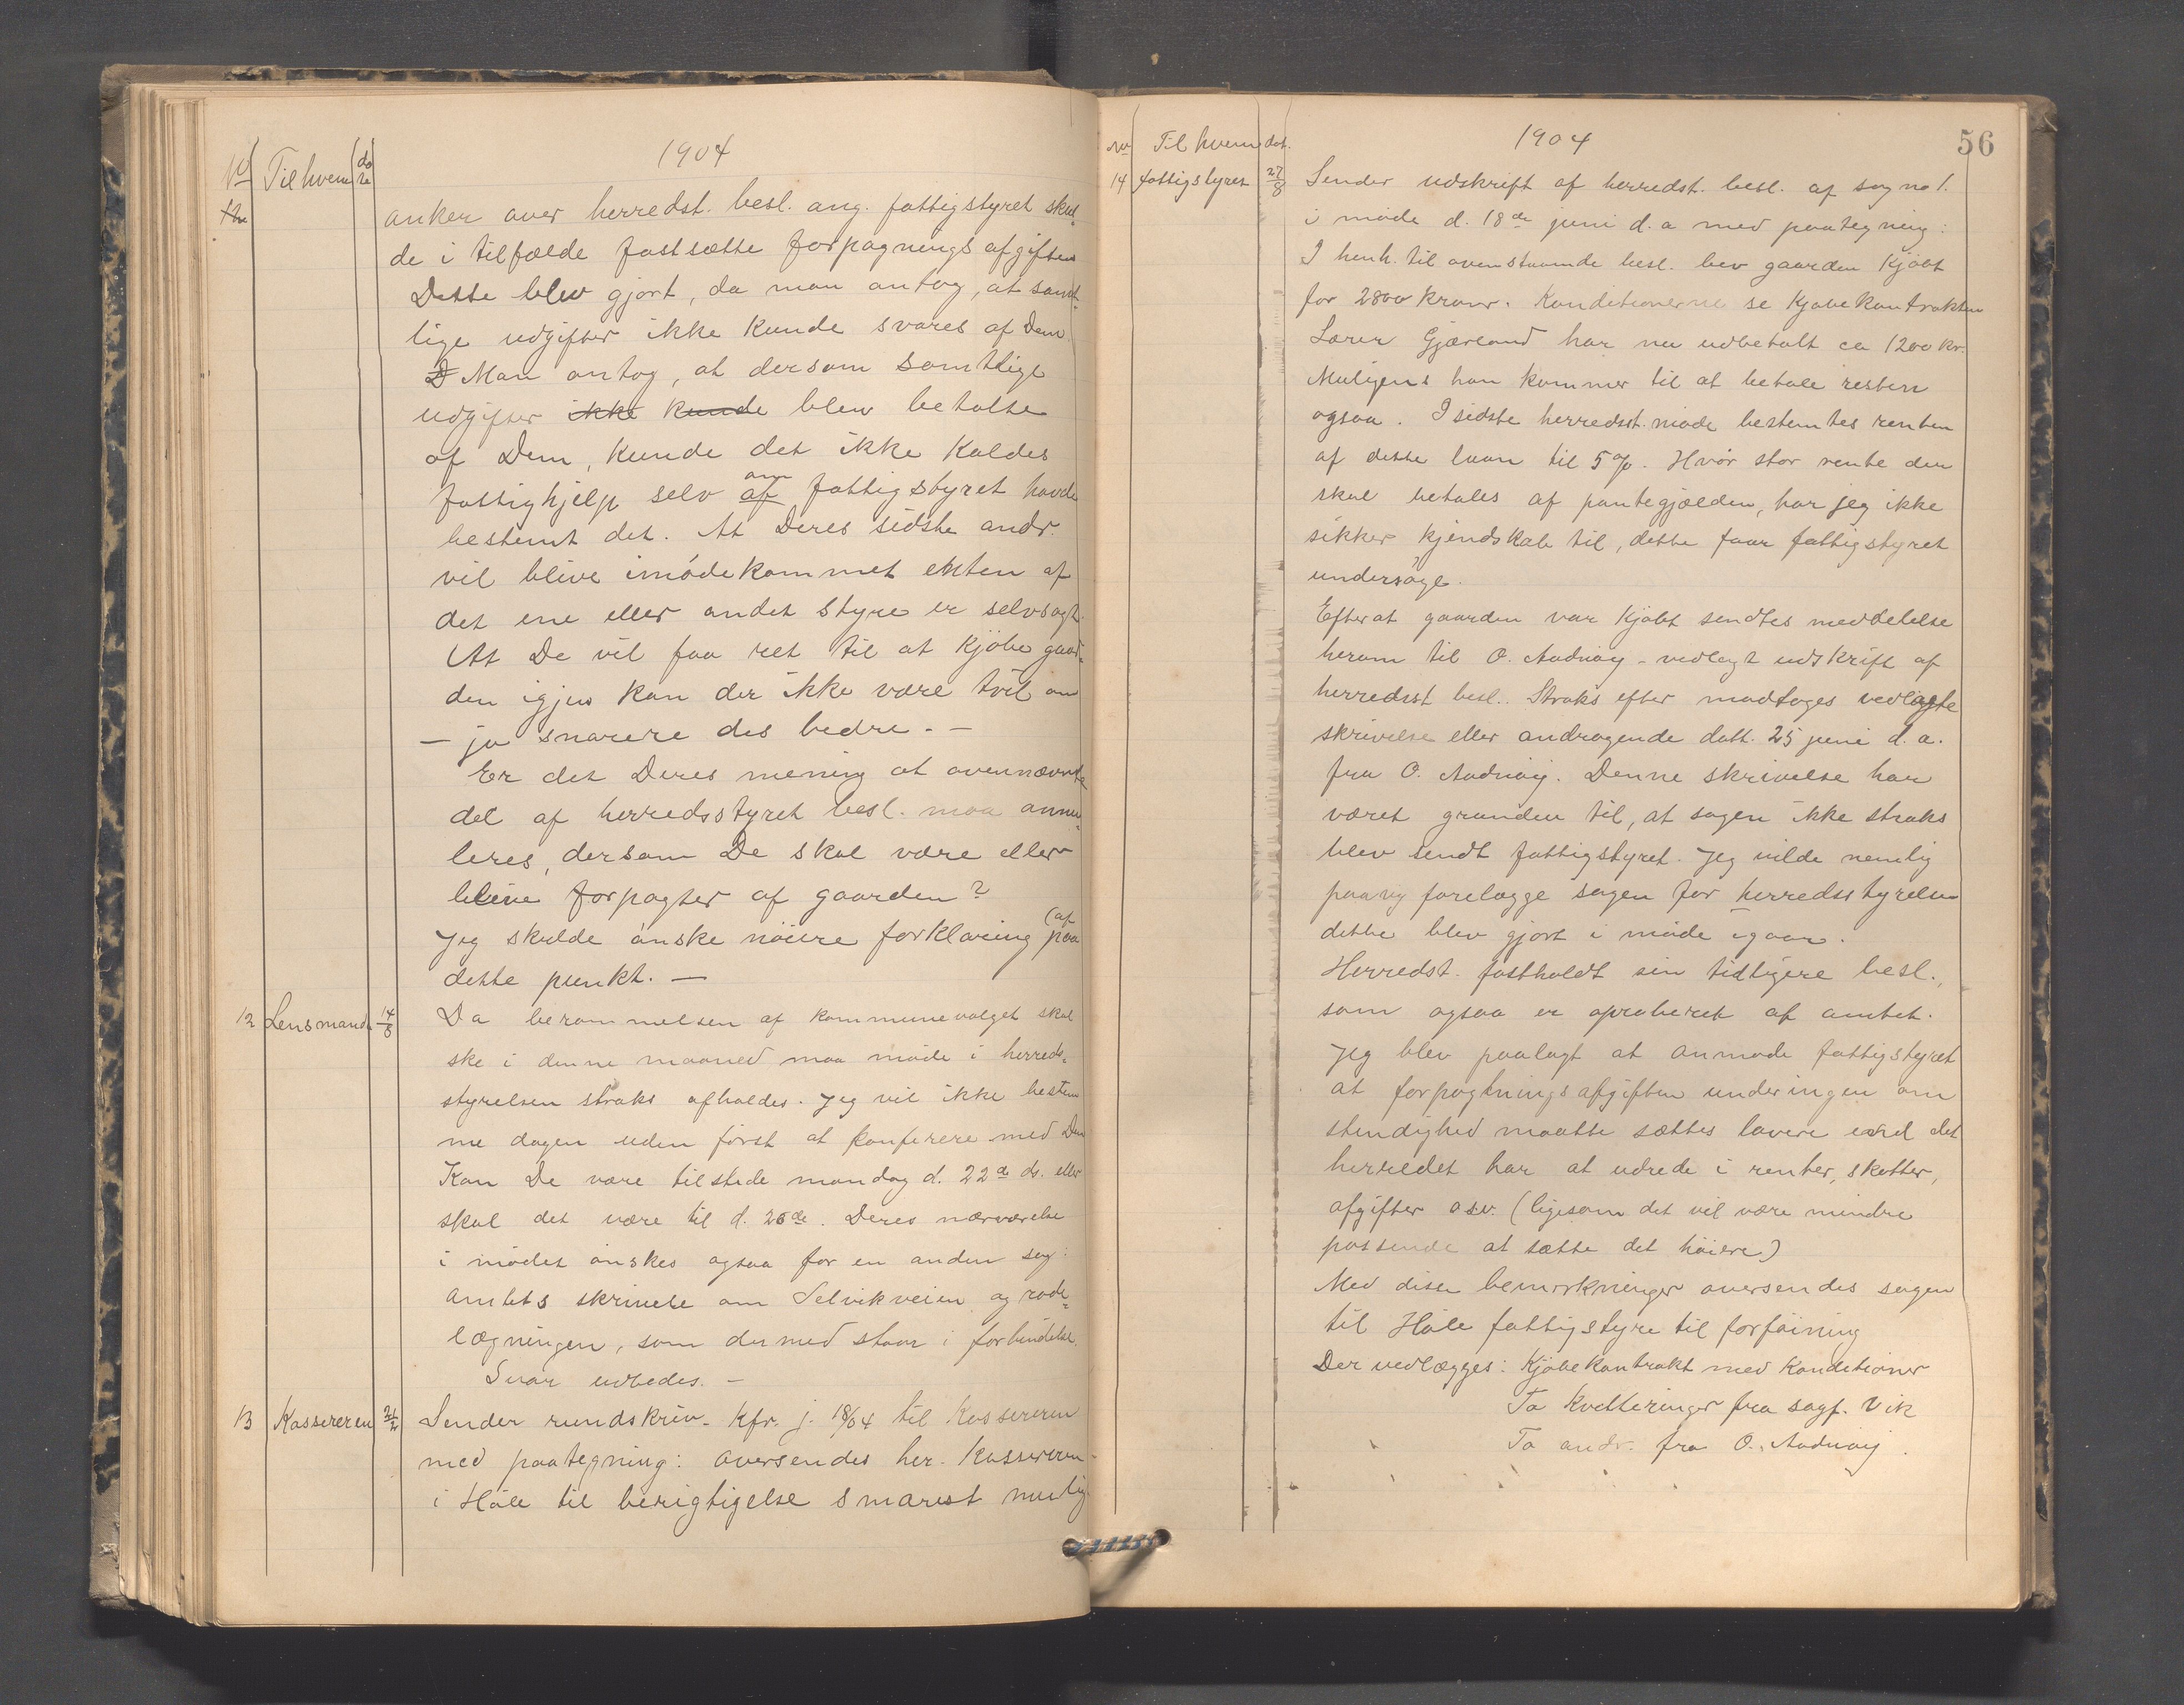 No Til hvem date
1904
anker over herredst. besl. ang. fattigstyret skul-
de i tilfælde fastsætte forpagnings afgiften
Dette blev gjort, da man antog, at samt-
lige udgifter ikke kunde svares af Dem.
D Man antog, at dersom samtlige
udgifter ikke kunde blev betalte
af Dem, kunde det ikke kaldes
fattighjelp selv af om fattigstyret havde
bestemt det. At Deres sidste andr.
vil blive imødekommet enten af
det ene eller andet styre er selvsagt.
At De vil faa ret til at kjøbe gaar-
den igjen kan der ikke være tvil om
– jo snarere des bedre. –
Er det Deres mening at ovennævnte
del af herredsstyret besl. maa annu-
leres, dersom De skal være eller
blive forpagter af gaarden?
Jeg skulde ønske nøiere forklaring (af paa
dette punkt. –
12 Lensmand 14/8 Da berammelsen af kommunevalget skal
ske i denne maaned maa møde i herreds-
styrelsen straks afholdes. Jeg vil ikke bestem
me dagen uden først at konferere med Dem
Kan De være tilstede mandag d. 22de ds. eller
skal det være til d. 26de. Deres nærværelse
i mødet ønskes ogsaa for en anden sag:
Amtets skrivelse om Selvikveien og rode-
lægningen, som dermed staar i forbindelse.
Svar udbedes. –
13 Kassereren Sender rundskriv. Kfr. j. 18/04 til Kassereren
med paategning: oversendes her. Kassereren
i Håle til berigtigelse snarest mulig.
56
No Til hvem dat.
1904
14 fattigstyret 27/8 Sender udskrift af herredst. besl. af sag no 1.
i møde d. 18de juni d.a med paategning:
I henh. til ovenstaaende besl. bev gaarden kjøbt
for 2800 kroner. Konditionerne se kjøbekontrakten
Lærer Gjærland har nu udbetalt ca 1200 kr.
Muligens han kommer til at betale resten
ogsaa. I sidste herredsst. møde bestemtes renten
af dette laan til 5%. Hvor stor rente der
skal betales af pantegjælden, har jeg ikke
sikker kjendskab til, dette faar fattigstyret
undersøge.
Efterat gaarden var kjøbt sendtes meddelelse
herom til O. Aadnøy – vedlagt udskrift af
herredsst besl.. Straks efter modtoges vedlagte
skrivelse eller andragende datt. 25 juni d.a.
fra O. Aadnøy. Denne skrivelse har
været grunden til, at sagen ikke straks
blev sendt fattigstyret. Jeg vilde nemlig
paany forelægge sagen for herredsstyrelsen
dette blev gjort i møde igaar.
Herredst. fastholdt sin tidligere besl.,
som ogsaa er aproberet af amtet.
Jeg blev paalagt at anmode fattigstyret
at forpagtningsafgiften under ingen om
stendighed maatte sættes lavere end det
herredet har at udrede i renter, skatter,
afgifter osv. (ligesom det vil være mindre
passende at sætte det høiere)
Med disse bemerkninger oversendes sagen
til Håle fattigstyre til forføining
Der vedlægges: Kjøbekontrakt med Konditioner
To kvitteringer fra sagf. Vik
To andr. fra O. Aadnøy.